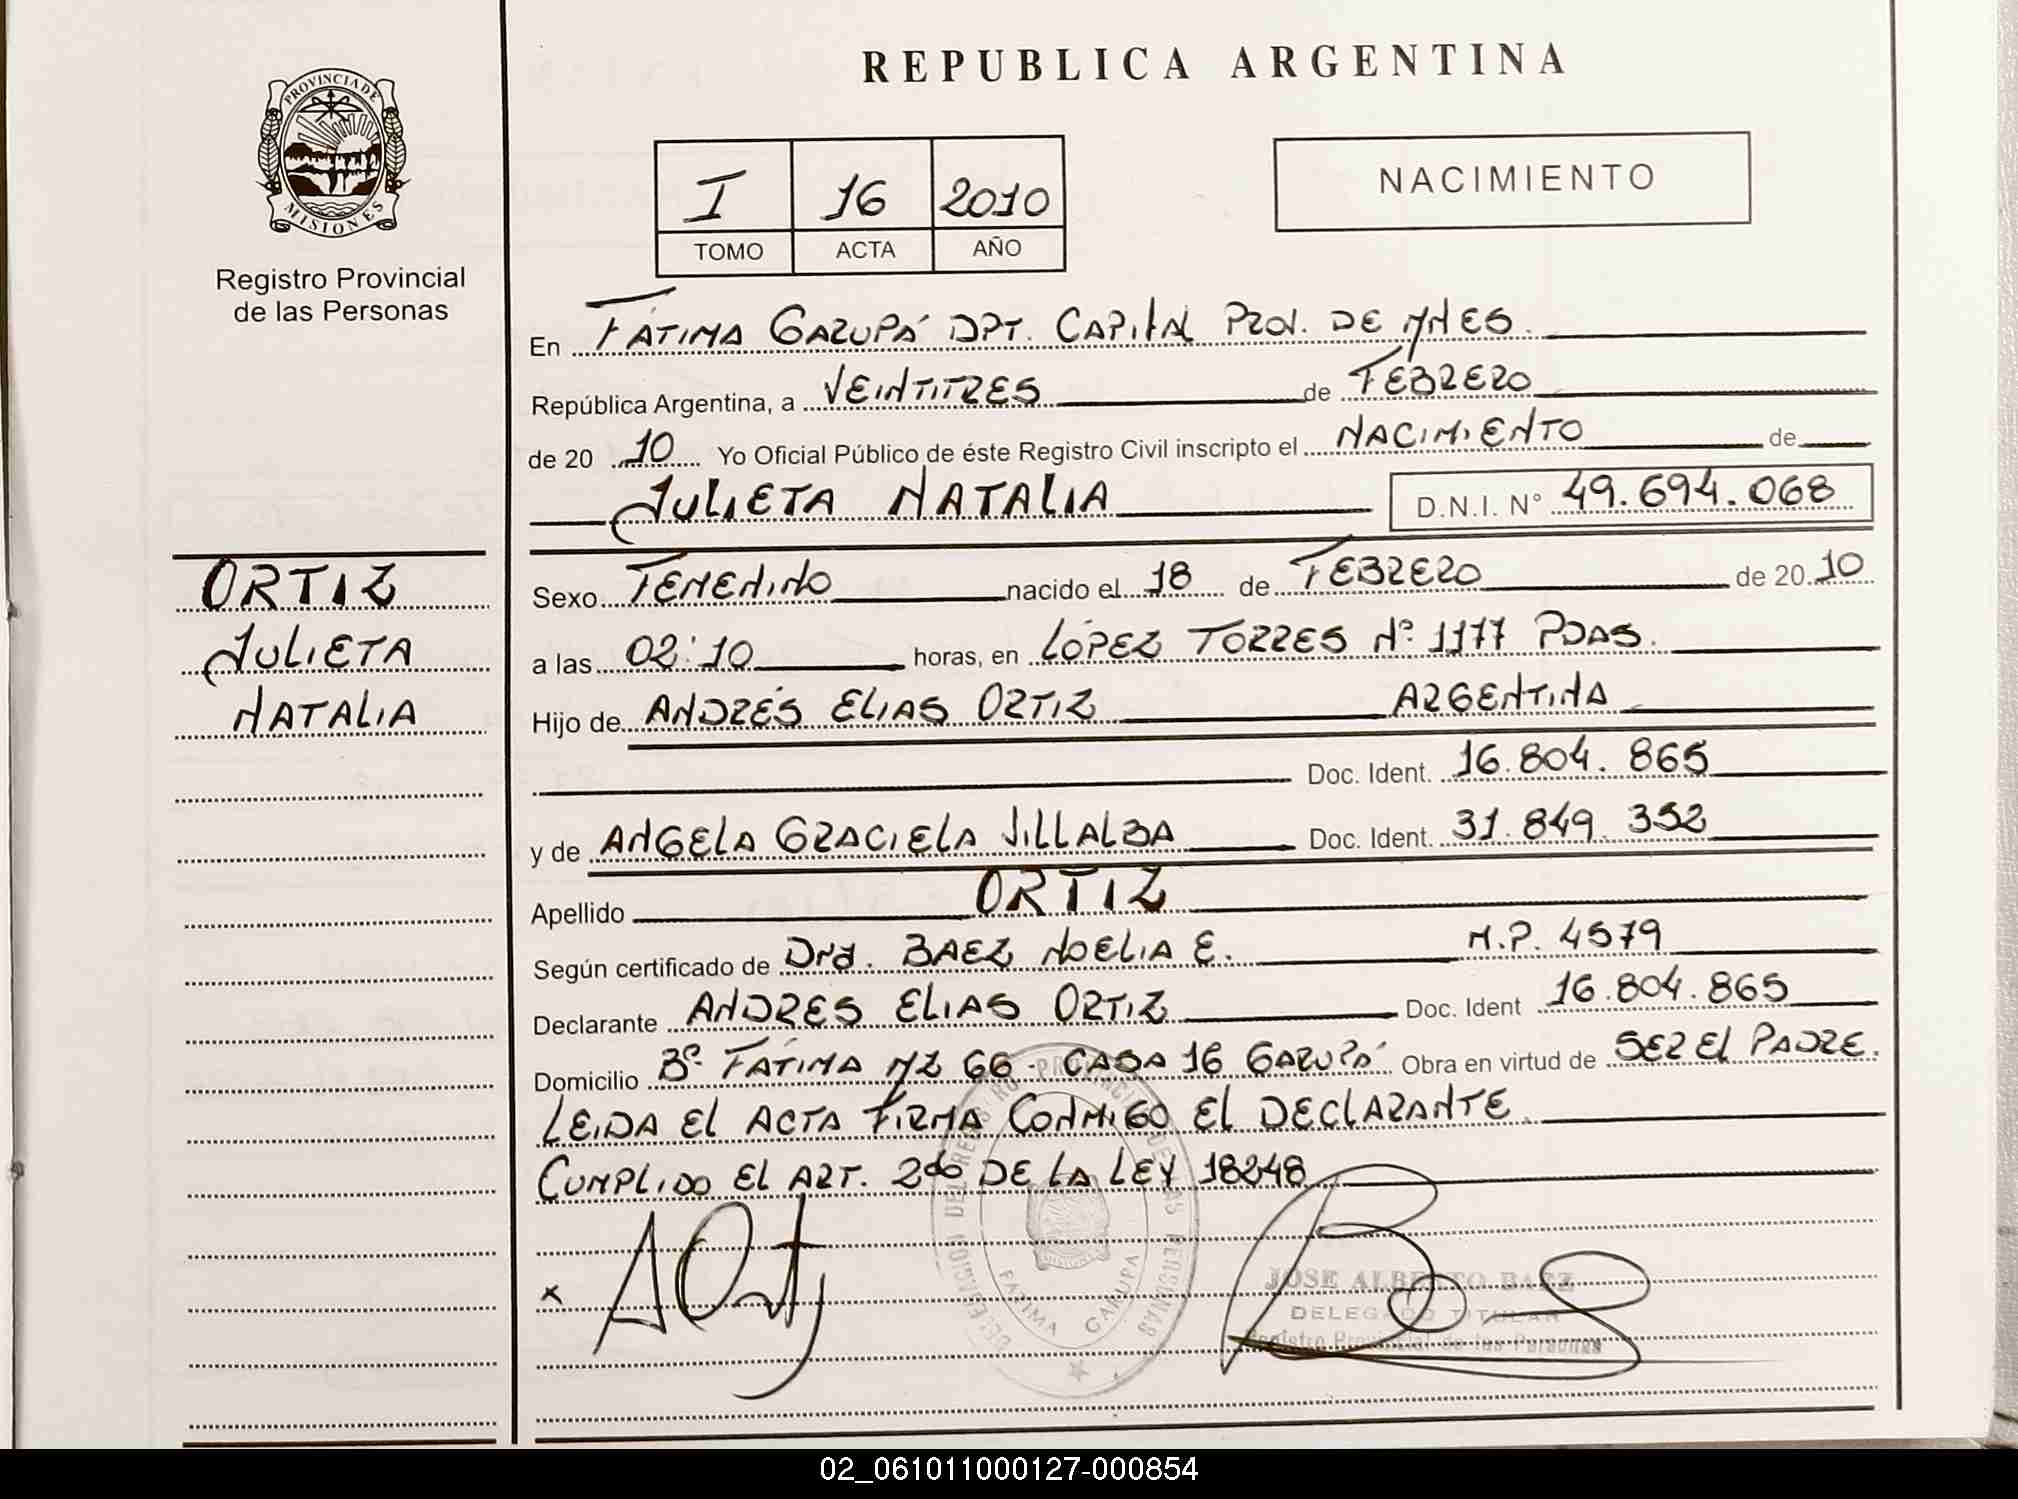 PROVINCIA DE
MISIONES
Registro Provincial
de las Personas
ORTIZ
JULIETA
NATALIA
REPUBLICA ARGENTINA
I 16 2010
TOMO ACTA AÑO
NACIMIENTO
En FÁTIMA GARUPÁ DPT. CAPITAL PROV. DE MNES.
República Argentina, a VEINTITRES de FEBRERO
de 20 10 Yo Oficial Público de éste Registro Civil inscripto el NACIMIENTO de
JULIETA NATALIA D.N.I. N° 49.694.068
Sexo FEMENINO nacido el 18 de FEBRERO de 20 10
a las 02:10 horas, en LÓPEZ TORRES Nº 1177 PDAS.
Hijo de ANDRÉS ELIAS ORTIZ ARGENTINA
Doc. Ident. 16.804.865
y de ANGELA GRACIELA VILLALBA Doc. Ident. 31.849.352
Apellido ORTIZ
Según certificado de Dra. BAEZ NOELIA E. M.P. 4579
Declarante ANDRES ELIAS ORTIZ Doc. Ident 16.804.865
Domicilio Bº FÁTIMA MZ 66 - CASA 16 GARUPÁ Obra en virtud de SER EL PADRE.
LEIDA EL ACTA FIRMA CONMIGO EL DECLARANTE.
CUMPLIDO EL ART. 2do DE LA LEY 18248
DELEGACION DEL REGISTRO PROVINCIAL DE LAS PERSONAS
FATIMA GARUPA
x
JOSE ALBERTO BAEZ
DELEGADO TITULAR
Registro Provincial de las Personas
02_061011000127-000854